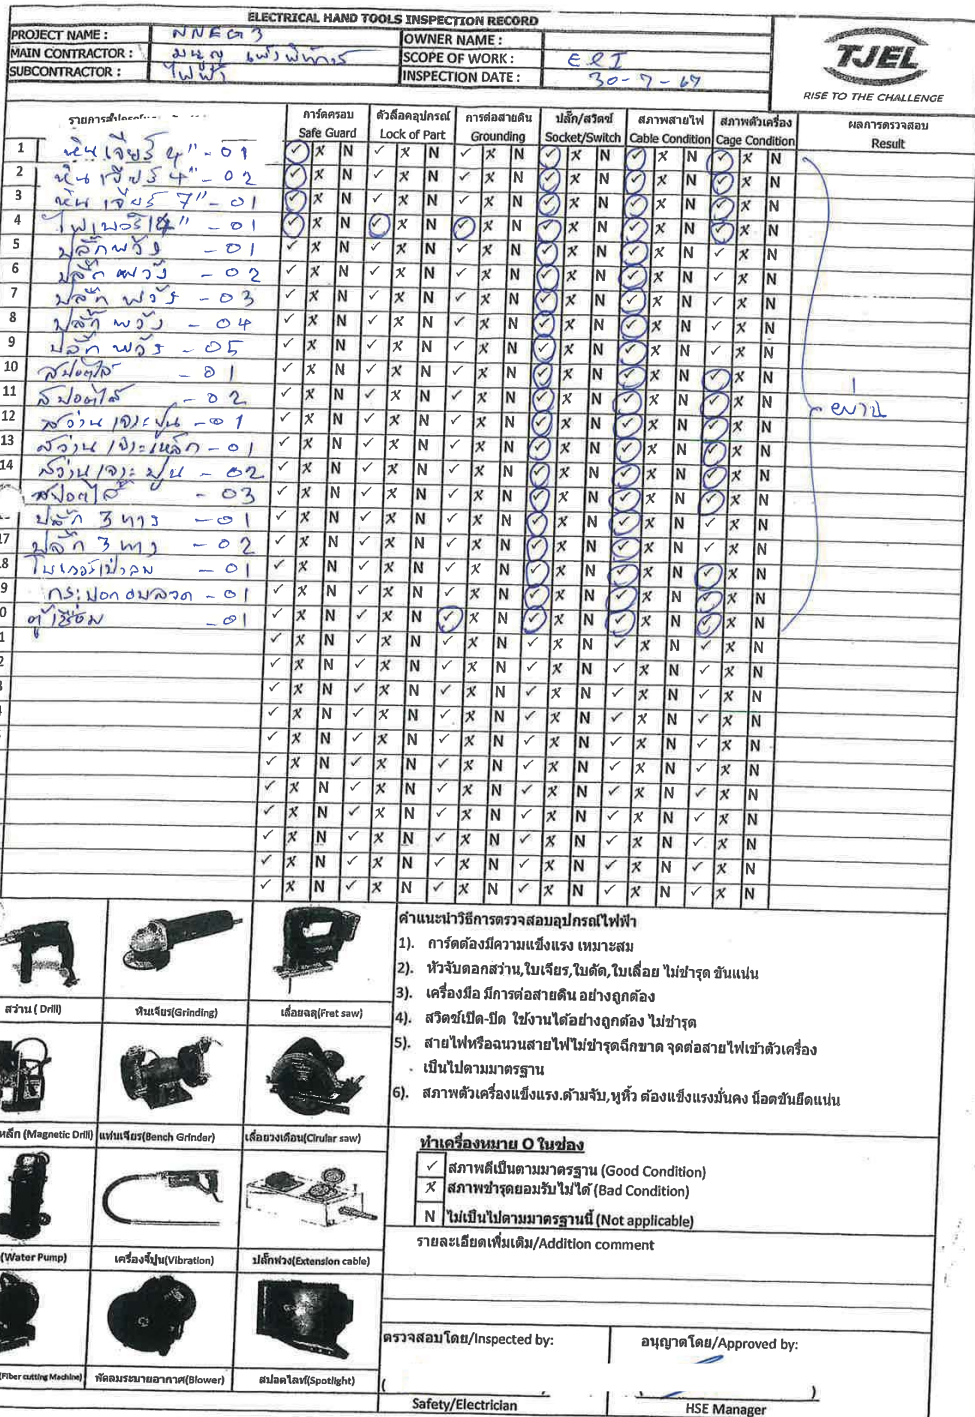 ELECTRICAL HAND TOOLS INSPECTION RECORD
PROJECT NAME : NNEG3 OWNER NAME :
MAIN CONTRACTOR : SCOPE OF WORK : E&I
SUBCONTRACTOR : ไฟฟ้า INSPECTION DATE : 30-7-67
TJEL
RISE TO THE CHALLENGE
การ์ดครอบ ตัวล็อคอุปกรณ์ การต่อสายดิน ปลั๊ก/สวิตช์ สภาพสายไฟ สภาพตัวเครื่อง ผลการตรวจสอบ
Safe Guard Lock of Part Grounding Socket/Switch Cable Condition Cage Condition Result
1 หินเจียร์ 4" - 01 ✓ x N ✓ x N ✓ x N ✓ x N ✓ x N ✓ x N
2 หินเจียร์ 4" - 02 ✓ x N ✓ x N ✓ x N ✓ x N ✓ x N ✓ x N
3 หินเจียร์ 7" - 01 ✓ x N ✓ x N ✓ x N ✓ x N ✓ x N ✓ x N
4 - 01 ✓ x N ✓ x N ✓ x N ✓ x N ✓ x N ✓ x N
5 ปลั๊กพ่วง - 01 ✓ x N ✓ x N ✓ x N ✓ x N ✓ x N ✓ x N
6 ปลั๊กพ่วง - 02 ✓ x N ✓ x N ✓ x N ✓ x N ✓ x N ✓ x N
7 ปลั๊กพ่วง - 03 ✓ x N ✓ x N ✓ x N ✓ x N ✓ x N ✓ x N
8 ปลั๊กพ่วง - 04 ✓ x N ✓ x N ✓ x N ✓ x N ✓ x N ✓ x N
9 ปลั๊กพ่วง - 05 ✓ x N ✓ x N ✓ x N ✓ x N ✓ x N ✓ x N
10 สปอตไล์ - 01 ✓ x N ✓ x N ✓ x N ✓ x N ✓ x N ✓ x N
11 สปอตไล์ - 02 ✓ x N ✓ x N ✓ x N ✓ x N ✓ x N ✓ x N
12 สว่านเจาะปูน - 01 ✓ x N ✓ x N ✓ x N ✓ x N ✓ x N ✓ x N ผ่าน
13 สว่านเจาะเหล็ก - 01 ✓ x N ✓ x N ✓ x N ✓ x N ✓ x N ✓ x N
14 สว่านเจาะปูน - 02 ✓ x N ✓ x N ✓ x N ✓ x N ✓ x N ✓ x N
สปอตไล์ - 03 ✓ x N ✓ x N ✓ x N ✓ x N ✓ x N ✓ x N
ปลั๊ก 3 ทาง - 01 ✓ x N ✓ x N ✓ x N ✓ x N ✓ x N ✓ x N
17 ปลั๊ก 3 ทาง - 02 ✓ x N ✓ x N ✓ x N ✓ x N ✓ x N ✓ x N
8 โบเวอร์เป่าลม - 01 ✓ x N ✓ x N ✓ x N ✓ x N ✓ x N ✓ x N
9 กระบอกอบลวด - 01 ✓ x N ✓ x N ✓ x N ✓ x N ✓ x N ✓ x N
0 ตู้เชื่อม - 01 ✓ x N ✓ x N ✓ x N ✓ x N ✓ x N ✓ x N
1 ✓ x N ✓ x N ✓ x N ✓ x N ✓ x N ✓ x N
2 ✓ x N ✓ x N ✓ x N ✓ x N ✓ x N ✓ x N
✓ x N ✓ x N ✓ x N ✓ x N ✓ x N ✓ x N
✓ x N ✓ x N ✓ x N ✓ x N ✓ x N ✓ x N
✓ x N ✓ x N ✓ x N ✓ x N ✓ x N ✓ x N
✓ x N ✓ x N ✓ x N ✓ x N ✓ x N ✓ x N
✓ x N ✓ x N ✓ x N ✓ x N ✓ x N ✓ x N
✓ x N ✓ x N ✓ x N ✓ x N ✓ x N ✓ x N
✓ x N ✓ x N ✓ x N ✓ x N ✓ x N ✓ x N
✓ x N ✓ x N ✓ x N ✓ x N ✓ x N ✓ x N
✓ x N ✓ x N ✓ x N ✓ x N ✓ x N ✓ x N
สว่าน ( Drill) หินเจียร(Grinding) เลื่อยฉลุ(Fret saw)
หล็ก (Magnetic Drill) แท่นเจียร(Bench Grinder) เลื่อยวงเดือน(Cirular saw)
(Water Pump) เครื่องจี้ปูน(Vibration) ปลั๊กพ่วง(Extension cable)
(Fiber cutting Machine) พัดลมระบายอากาศ(Blower) สปอตไลท์(Spotlight)
คำแนะนำวิธีการตรวจสอบอุปกรณ์ไฟฟ้า
1). การ์ดต้องมีความแข็งแรง เหมาะสม
2). หัวจับดอกสว่าน,ใบเจียร,ใบตัด,ใบเลื่อย ไม่ชำรุด ขันแน่น
3). เครื่องมือ มีการต่อสายดิน อย่างถูกต้อง
4). สวิตซ์เปิด-ปิด ใช้งานได้อย่างถูกต้อง ไม่ชำรุด
5). สายไฟหรือฉนวนสายไฟไม่ชำรุดฉีกขาด จุดต่อสายไฟเข้าตัวเครื่อง
เป็นไปตามมาตรฐาน
6). สภาพตัวเครื่องแข็งแรง.ด้ามจับ,หูหิ้ว ต้องแข็งแรงมั่นคง น็อตขันยึดแน่น
ทำเครื่องหมาย O ในช่อง
✓ สภาพดีเป็นตามมาตรฐาน (Good Condition)
x สภาพชำรุดยอมรับไม่ได้ (Bad Condition)
N ไม่เป็นไปตามมาตรฐานนี้ (Not applicable)
รายละเอียดเพิ่มเติม/Addition comment
ตรวจสอบโดย/Inspected by: อนุญาตโดย/Approved by:
Safety/Electrician HSE Manager